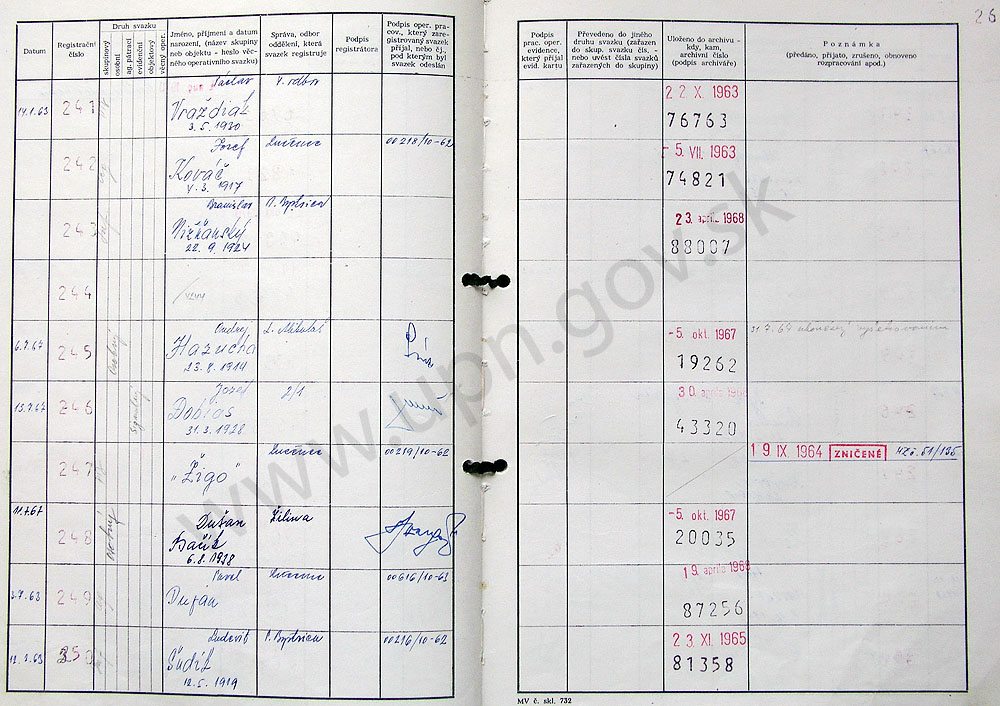 26
Datum
Registrační číslo
Druh svazku
skupinový
osobní
ag. pátrací
evidenční
objektový
věcný oper.
Jméno, příjmení a datum
narození, (název skupiny
neb objektu - heslo věc-
ného operativního svazku)
Správa, odbor
oddělení, která
svazek registruje
Podpis
registrátora
Podpis oper. pra-
cov., který zare-
gistrovaný svazek
přijal, nebo čj.,
pod kterým byl
svazek odeslán
Podpis
prac. oper.
evidence,
který přijal
evid. kartu
Převedeno do jiného
druhu svazku (zařazen
do skup. svazku čís. -
nebo uvést čísla svazků
zařazených do skupiny)
Uloženo do archivu -
kdy, kam,
archivní číslo
(podpis archiváře)
Poznámka
(předáno, přijato, zrušeno, obnoveno
rozpracování apod.)
241 Václav
Vraždiak
3. 5. 1930
22 X 1963
76763
242 Jozef Lučenec 00218/10-62
Kováč
4. 3. 1917
-5. VII. 1963
74821
243 Branislav B. Bystrica
Nižňanský
22. 9. 1924
23. apríla 1968
88007
244
6.7.67 245 Osobný Ondrej L. Mikuláš
Hazucha
23. 8. 1914
-5. okt. 1967
19262
31.7.67
246 Jozef 2/1
Dobiaš
31. 3. 1928
30. apríla
43320
247 Lučenec 00219/10-62
"Žigo"
19 IX 1964 ZNIČENÉ
11.7.67 248 Osobný Dušan Žilina
Bačík
6. 8. 1938
-5. okt. 1967
20035
249 Pavel Lučenec 00616/10-63
Dufán
19. apríla 1968
87256
250 Ľudovít B. Bystrica 00216/10-62
Šudík
12. 5. 1919
23. XI. 1965
81358
MV č. skl. 732
www.upn.gov.sk